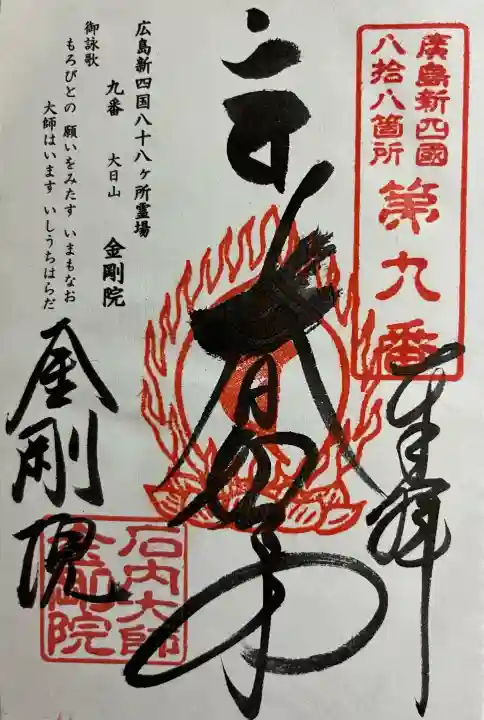 廣島新四國
八拾八箇所
第九番
奉拜
大日如来
広島新四国八十八ヶ所霊場
九番 大日山 金剛院
御詠歌
もろびとの 願いをみたす いまもなお
大師はいます いしうちはらだ
金剛院
石内大師
金剛院